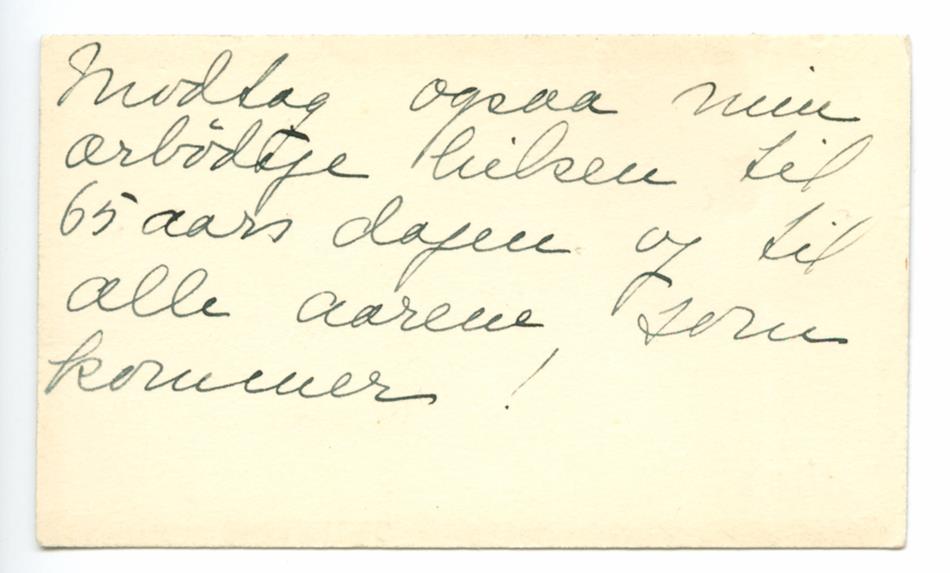 Modtag ogsaa min
ærbödige hilsen til
65 aars dagen og til
alle aarene, som
kommer!